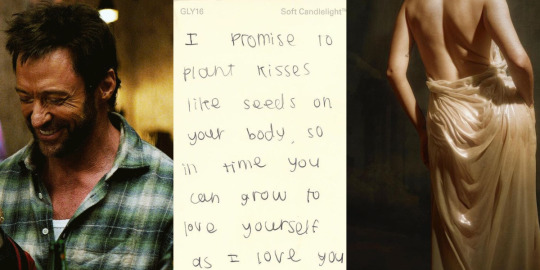 GLY16 Soft Candlelight™
I promise to
plant kisses
like seeds on
your body, so
in time you
can grow to
love yourself
as I love you